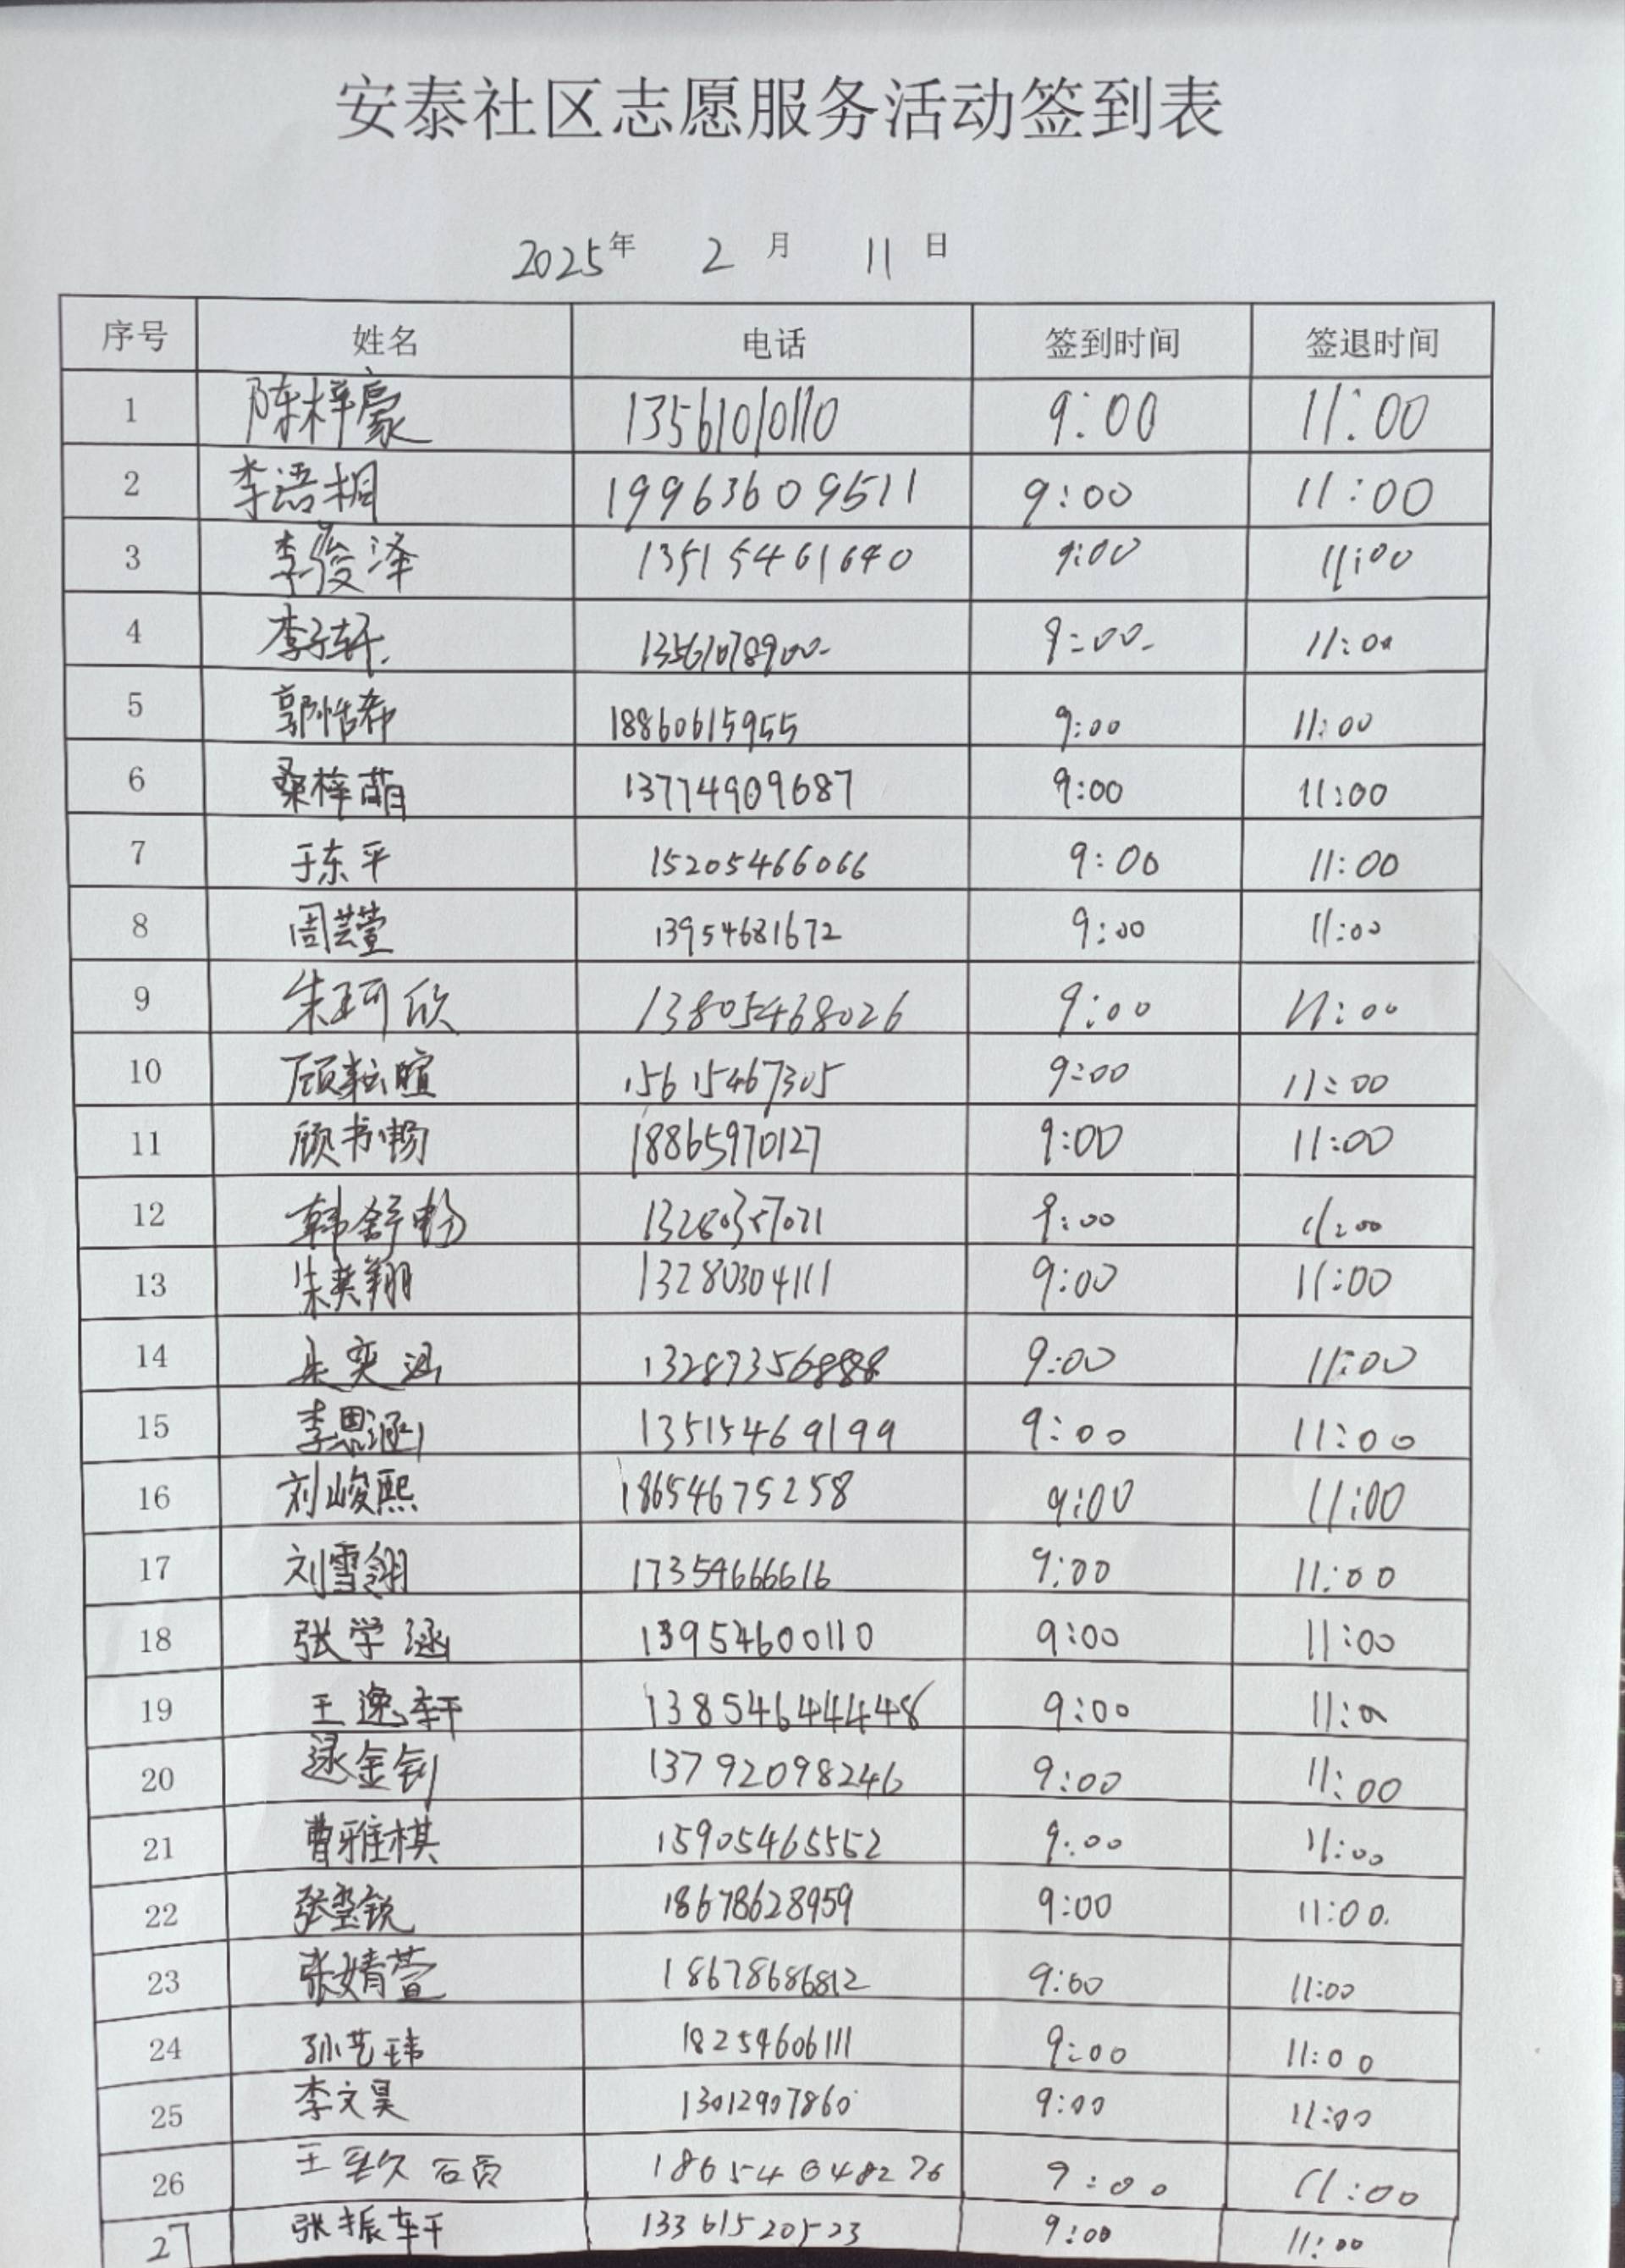 安泰社区志愿服务活动签到表
2025年 2月 11日
序号 姓名 电话 签到时间 签退时间
1 陈梓豪 13561010110 9:00 11:00
2 李语桐 19963609511 9:00 11:00
3 李骏泽 13515461640 9:00 11:00
4 李子轩 13561078900 9:00 11:00
5 郭恬希 18860615955 9:00 11:00
6 桑梓萌 13774909687 9:00 11:00
7 于东平 15205466066 9:00 11:00
8 周芸萱 13954681672 9:00 11:00
9 朱珂欣 13805468026 9:00 11:00
10 顾耘暄 15615467305 9:00 11:00
11 顾书畅 18865970127 9:00 11:00
12 韩舒畅 13280357071 9:00 11:00
13 朱英翔 13280304111 9:00 11:00
14 奕涵 13287356888 9:00 11:00
15 李思涵 13515469199 9:00 11:00
16 刘峻熙 18654675258 9:00 11:00
17 刘雪翎 17354666616 9:00 11:00
18 张学涵 13954600110 9:00 11:00
19 王逸轩 13854644448 9:00 11:0
20 逯金钊 13792098246 9:00 11:00
21 曹雅棋 15905465552 9:00 11:00
22 张玺锐 18678628959 9:00 11:00
23 张婧萱 18678686812 9:00 11:00
24 孙艺玮 18254606111 9:00 11:00
25 李文昊 13012907860 9:00 11:00
26 王 18654048276 9:00 11:00
27 张振轩 13361520523 9:00 11:00